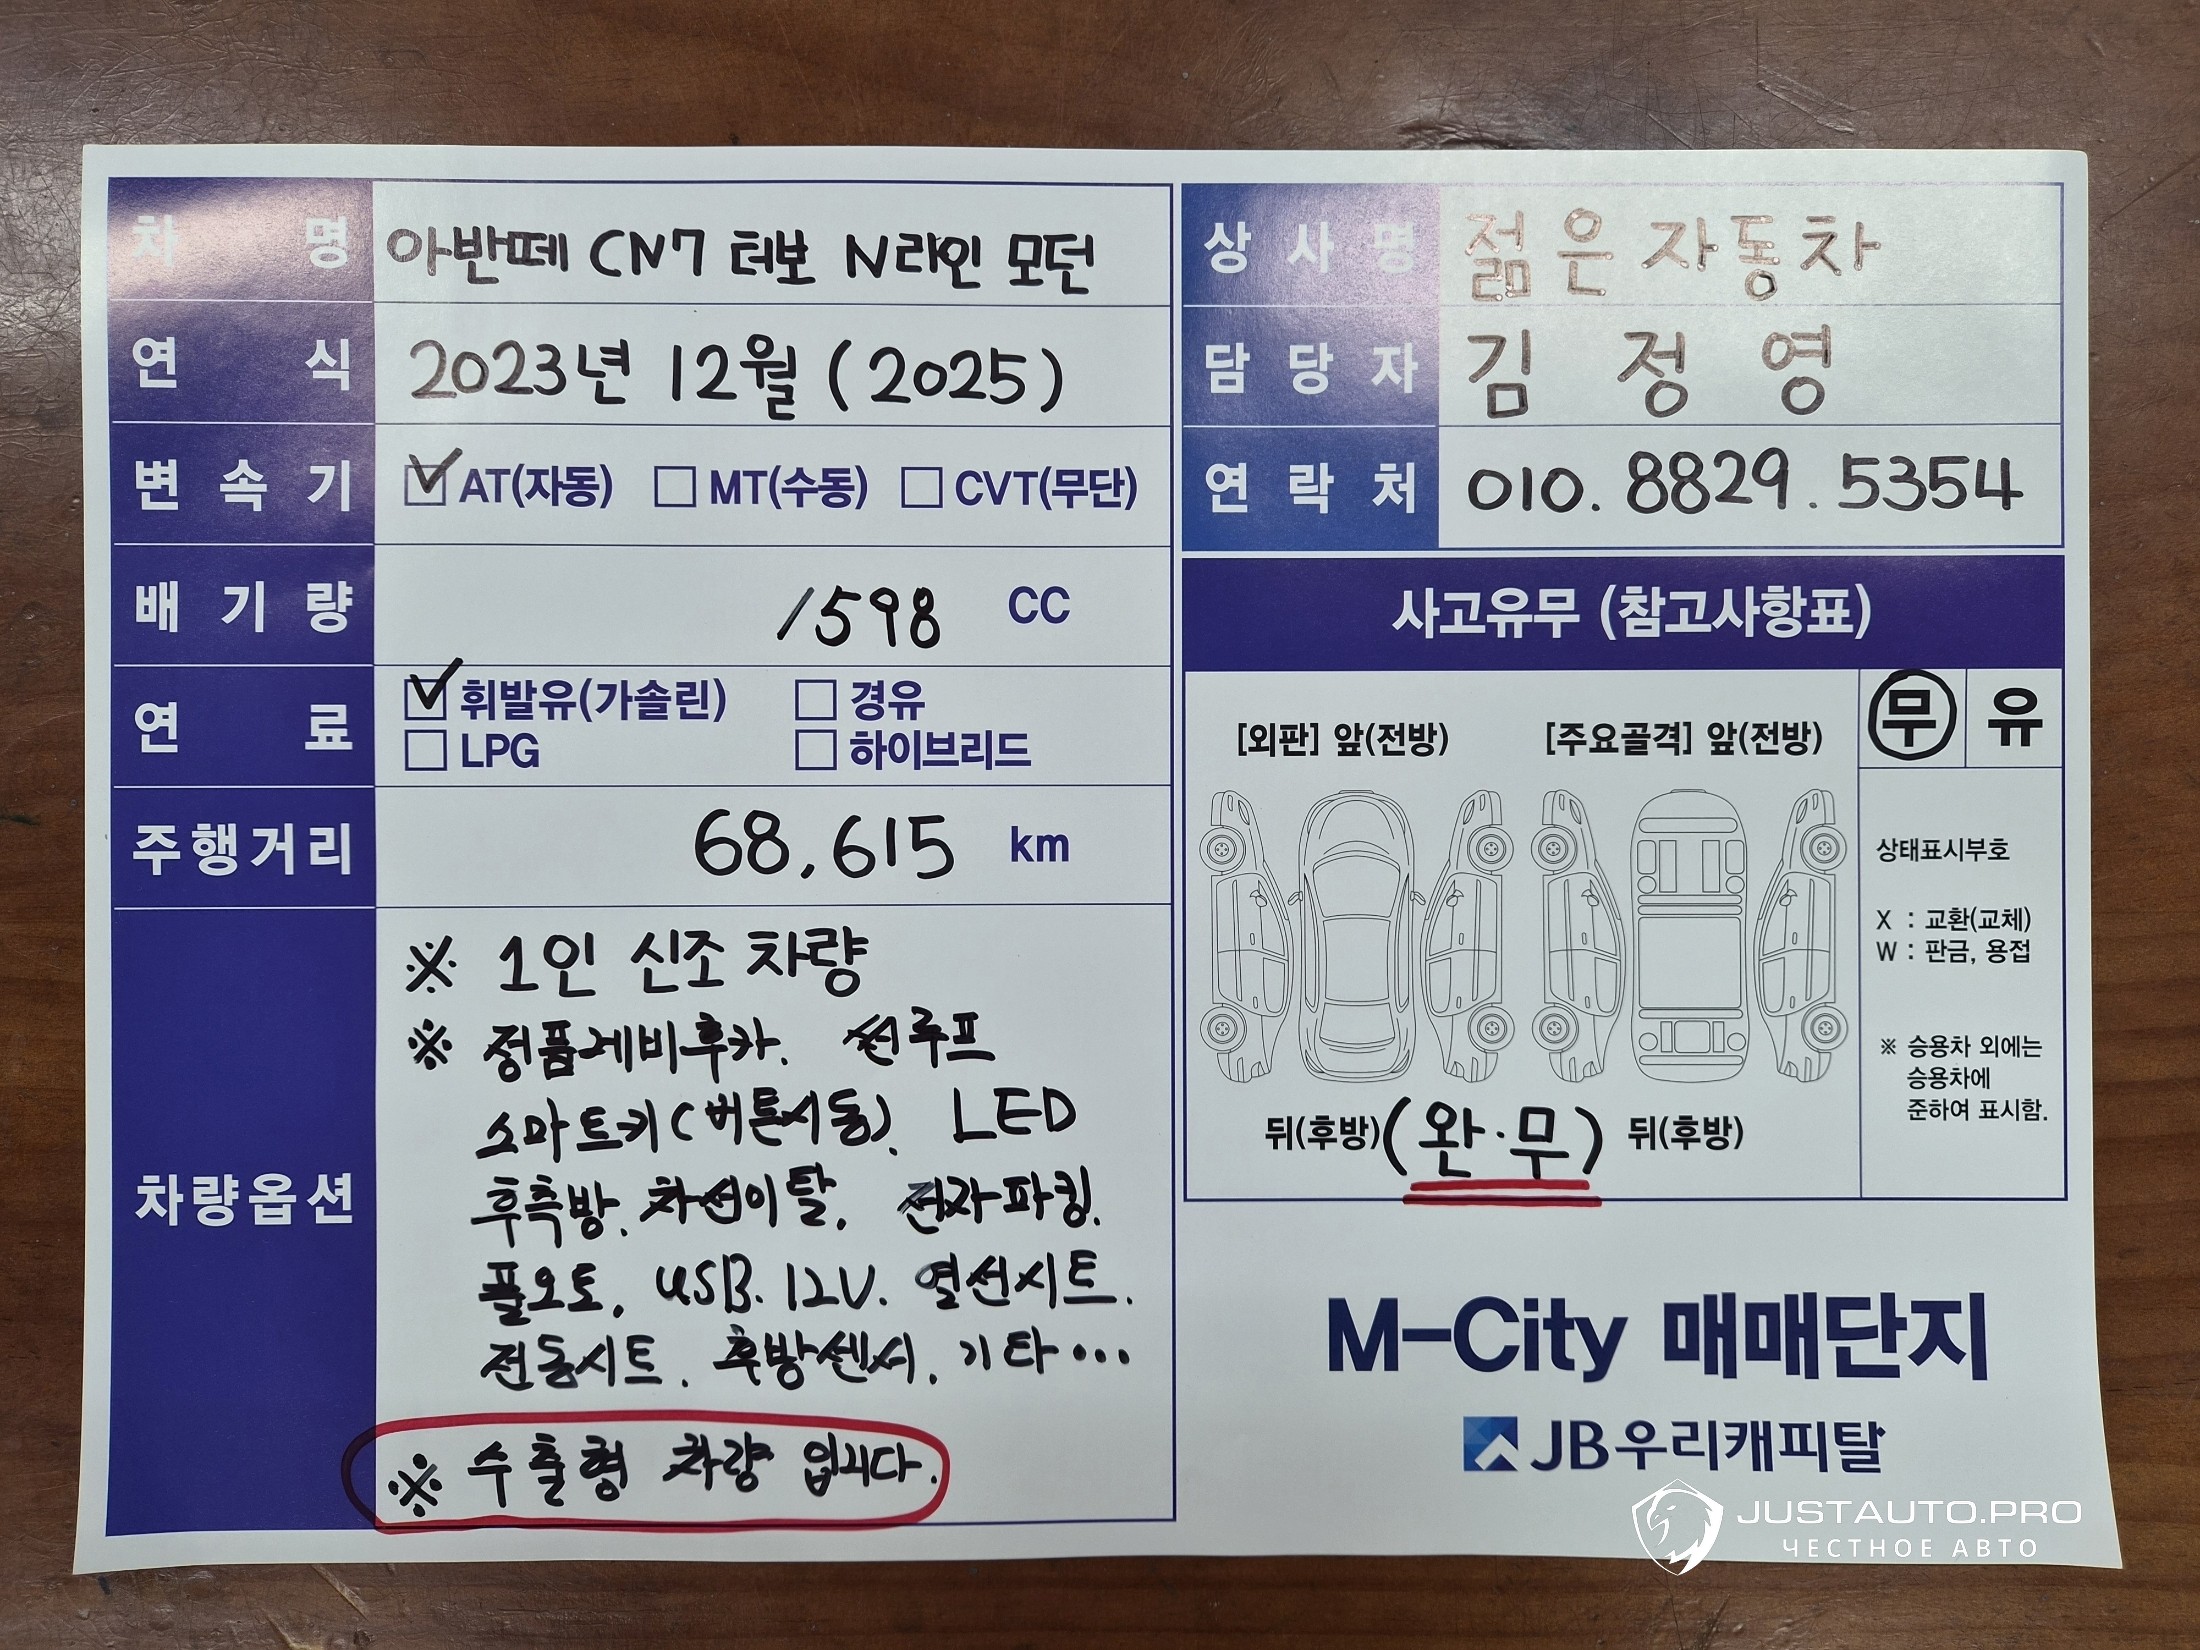 차 명 아반떼 CN7 터보 N라인 모던
연 식 2023년 12월 (2025)
변 속 기 AT(자동) MT(수동) CVT(무단)
배 기 량 1598 CC
연 료 휘발유(가솔린) 경유
LPG 하이브리드
주행거리 68,615 km
차량옵션
※ 1인 신조 차량
※ 정품네비후카. 썬루프
스마트키(버튼시동). LED
후측방. 차선이탈. 전자파킹.
풀오토. USB. 12V. 열선시트.
전동시트. 후방센서. 기타...
※ 수출형 차량 입니다.
상 사 명 젊은자동차
담 당 자 김 정 영
연 락 처 010. 8829. 5354
사고유무 (참고사항표)
무 유
[외판] 앞(전방) [주요골격] 앞(전방)
상태표시부호
X : 교환(교체)
W : 판금, 용접
※ 승용차 외에는
승용차에
준하여 표시함.
뒤(후방) (완.무) 뒤(후방)
M-City 매매단지
JB우리캐피탈
JUSTAUTO.PRO
ЧЕСТНОЕ АВТО